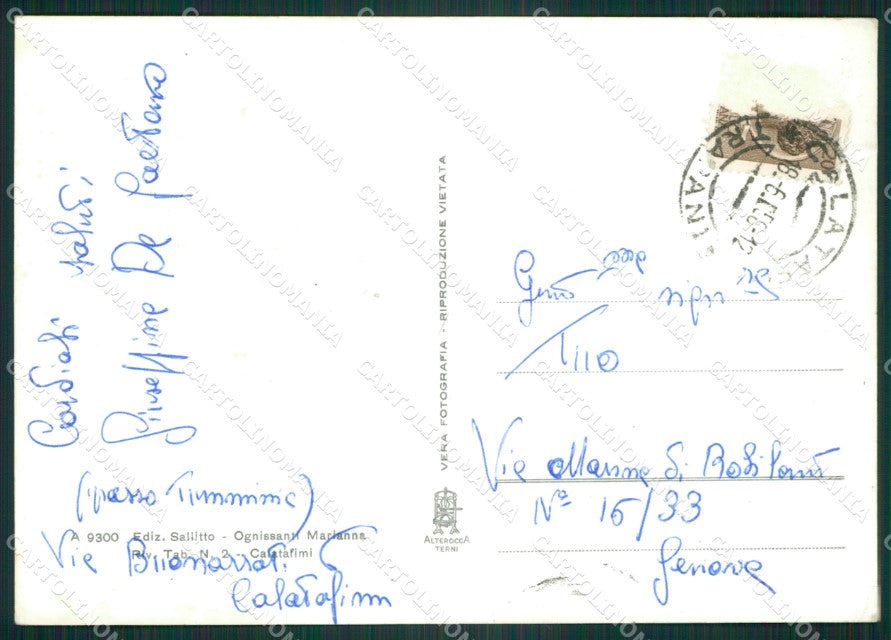 Cordiali saluti
Giuseppina De Gaetano
Via Buonarroti
Calatafimi
A 9300 Ediz. Sallitto - Ognissanti Marianna
Riv. Tab. N. 2 - Calatafimi
VERA FOTOGRAFIA - RIPRODUZIONE VIETATA
ALTEROCCA
TERNI
TRAPANI
Gent.ma sig.ra
Via Marina di Robilant
N° 15/33
Genova
CARTOLINOMANIA